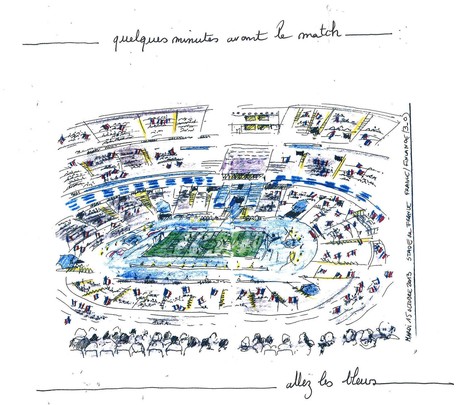 quelques minutes avant le match
MARDI 15 OCTOBRE 2013 STADE de FRANCE FRANCE/FINLANDE (3.0)
allez les bleus